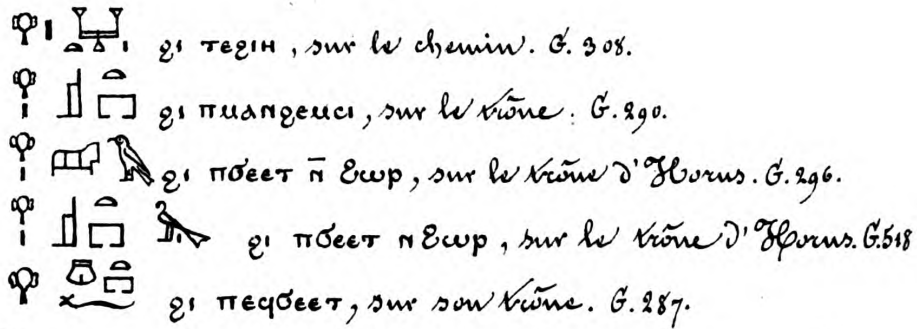 𓁷𓏤 ϩⲓ ⲧⲉϩⲓⲏ, sur le chemin. G. 308.
𓁷𓏤 𓊨𓏏𓉐 ϩⲓ ⲡⲙⲁⲛϩⲉⲙⲥⲓ, sur le trône. G. 290.
𓁷𓏤 𓅃 ϩⲓ ⲡϭⲉⲉⲧ ⲛ̄ Ϩⲱⲣ, sur le trône d'Horus. G. 296.
𓁷𓏤 𓊨𓏏𓉐 ϩⲓ ⲡϭⲉⲉⲧ ⲛ Ϩⲱⲣ, sur le trône d'Horus. G. 518
𓁷 𓏏𓉐𓆑 ϩⲓ ⲡⲉϥϭⲉⲉⲧ, sur son trône. G. 287.